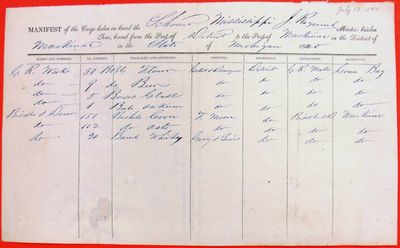 July 18, 18
MANIFEST of the Cargo laden on board the Schooner Mississippi J. Master; burden
Tons, bound from the Port of Detroit to the Port of Mackinac in the District of
Mackinac in the State of Michigan 18
MARKS AND NUMBERS. NO. ENTRIES. PACKAGES AND CONTENTS. SHIPPERS. RESIDENCE. CONSIGNEES. RESIDENCE.
50 Bbls Flour Detroit Green Bay
do 9 do Beer do do do do
do 5 Boxes Glass do do do do
do 1 Bale Oakum do do do do
Biddle & Drew 151 Bushls Corn F. Moore do Mackinac
do 152 do Oats do do do do
do 20 Whisky do do do